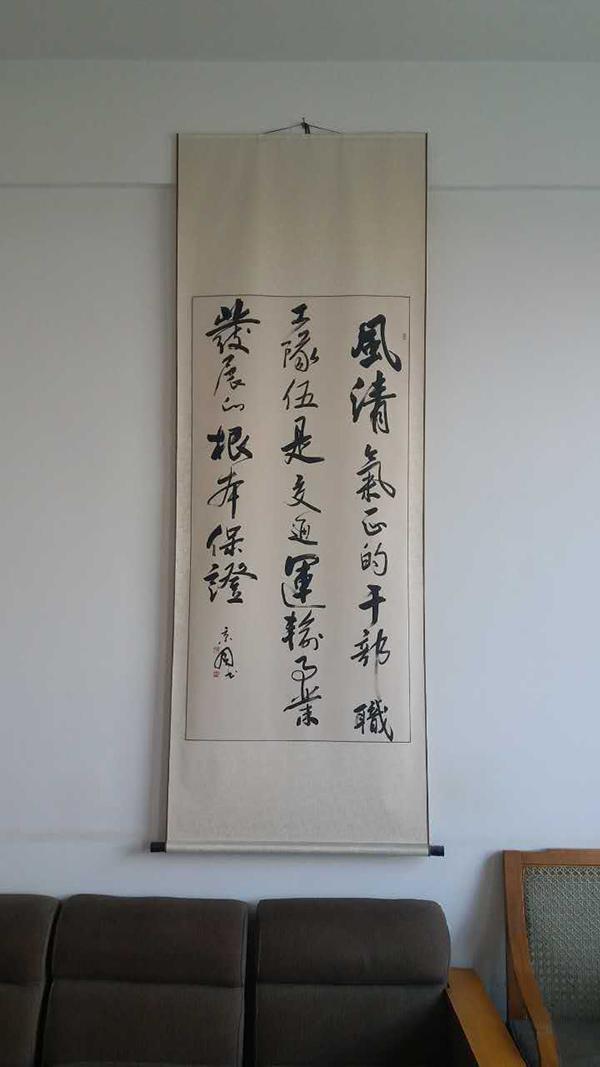 風清氣正的干部職
工隊伍是交通運輸事業
發展的根本保證